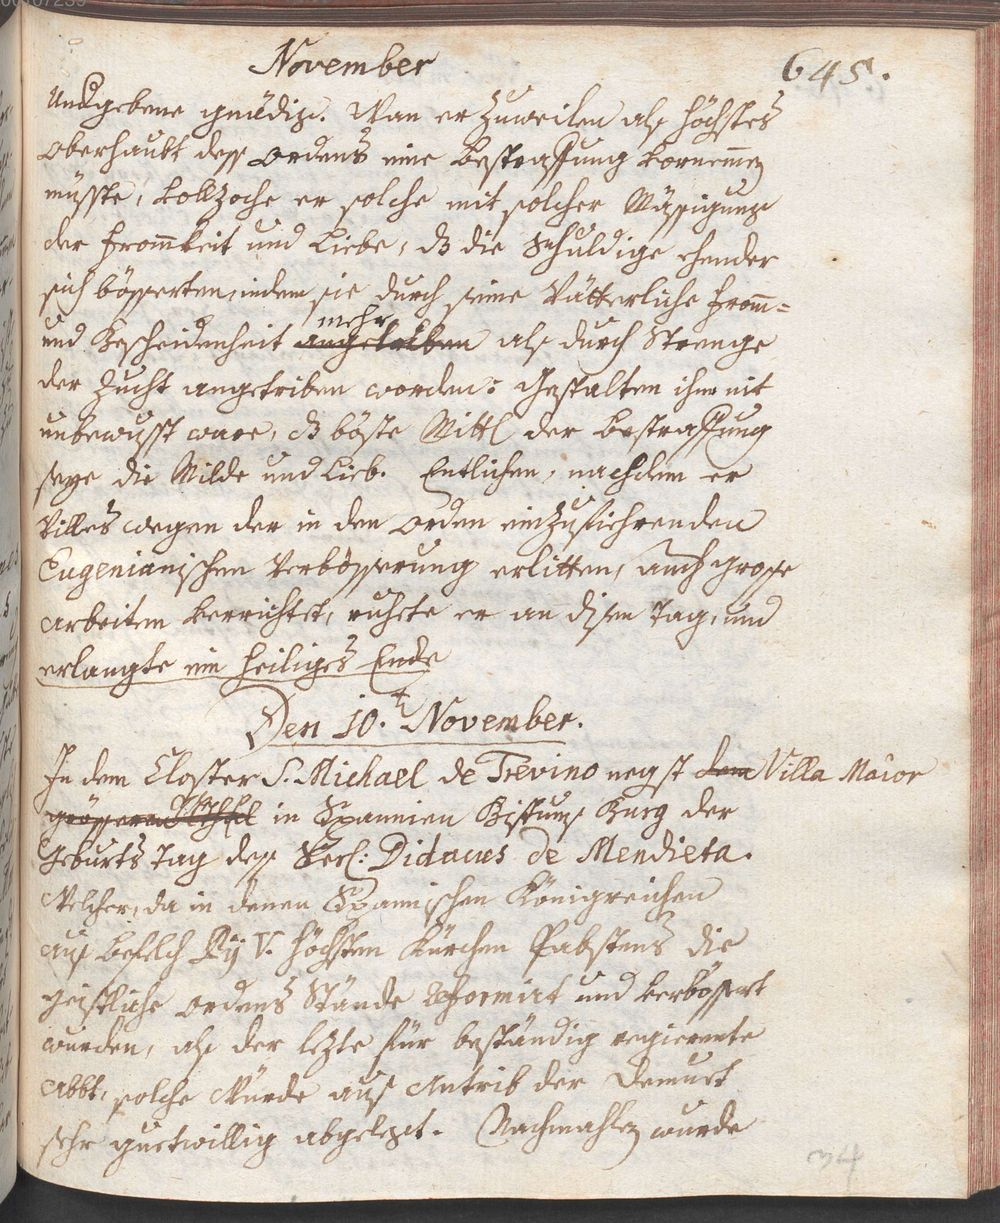 November 645.
Undgebene gnädig. Wan er zuweilen alß höchstes
Oberhaubt deß Ordens eine Bestraffung vornemmen
müsste, vollzoche er solche mit solcher Mässigung
der Frommkeit und Liebe, dz die Schuldige ehender
sich bösserten, indem sie durch seine Vätterliche Fromm-
mehr
und Bescheidenheit angetriben als durch Strenge
der Zucht angetriben worden: Gestalten ihm nit
unbewusst ware, dz böste Mittl der Bestraffung
seye die Milde und Lieb. Entlichen, nachdem er
Villes wegen der in den Orden einzufiehrenden
Eugenianischen Verbösserung erlitten, auch grosse
arbeiten verrichtet, ruhete er an disem Tag, und
erlangte ein heiliges Ende
Den 10.ten November.
In dem Closter S. Michael de Trevino negst dem Villa Maior
grösseren in Spannien Bistums Burg der
Geburts Tag deß Seel: Didacus de Mendieta.
Welcher, da in denen Spannischen Königreichen
auß befelch Pij V. höchsten Kürchen Pabstens die
geistliche Ordens Stände reformirt und verbössert
wurden, als der lezte für beständig regierente
Abbt, solche Würde auß Antrib der Demuet
sehr guetwillig abgelegt. Nachmahlen wurde
34